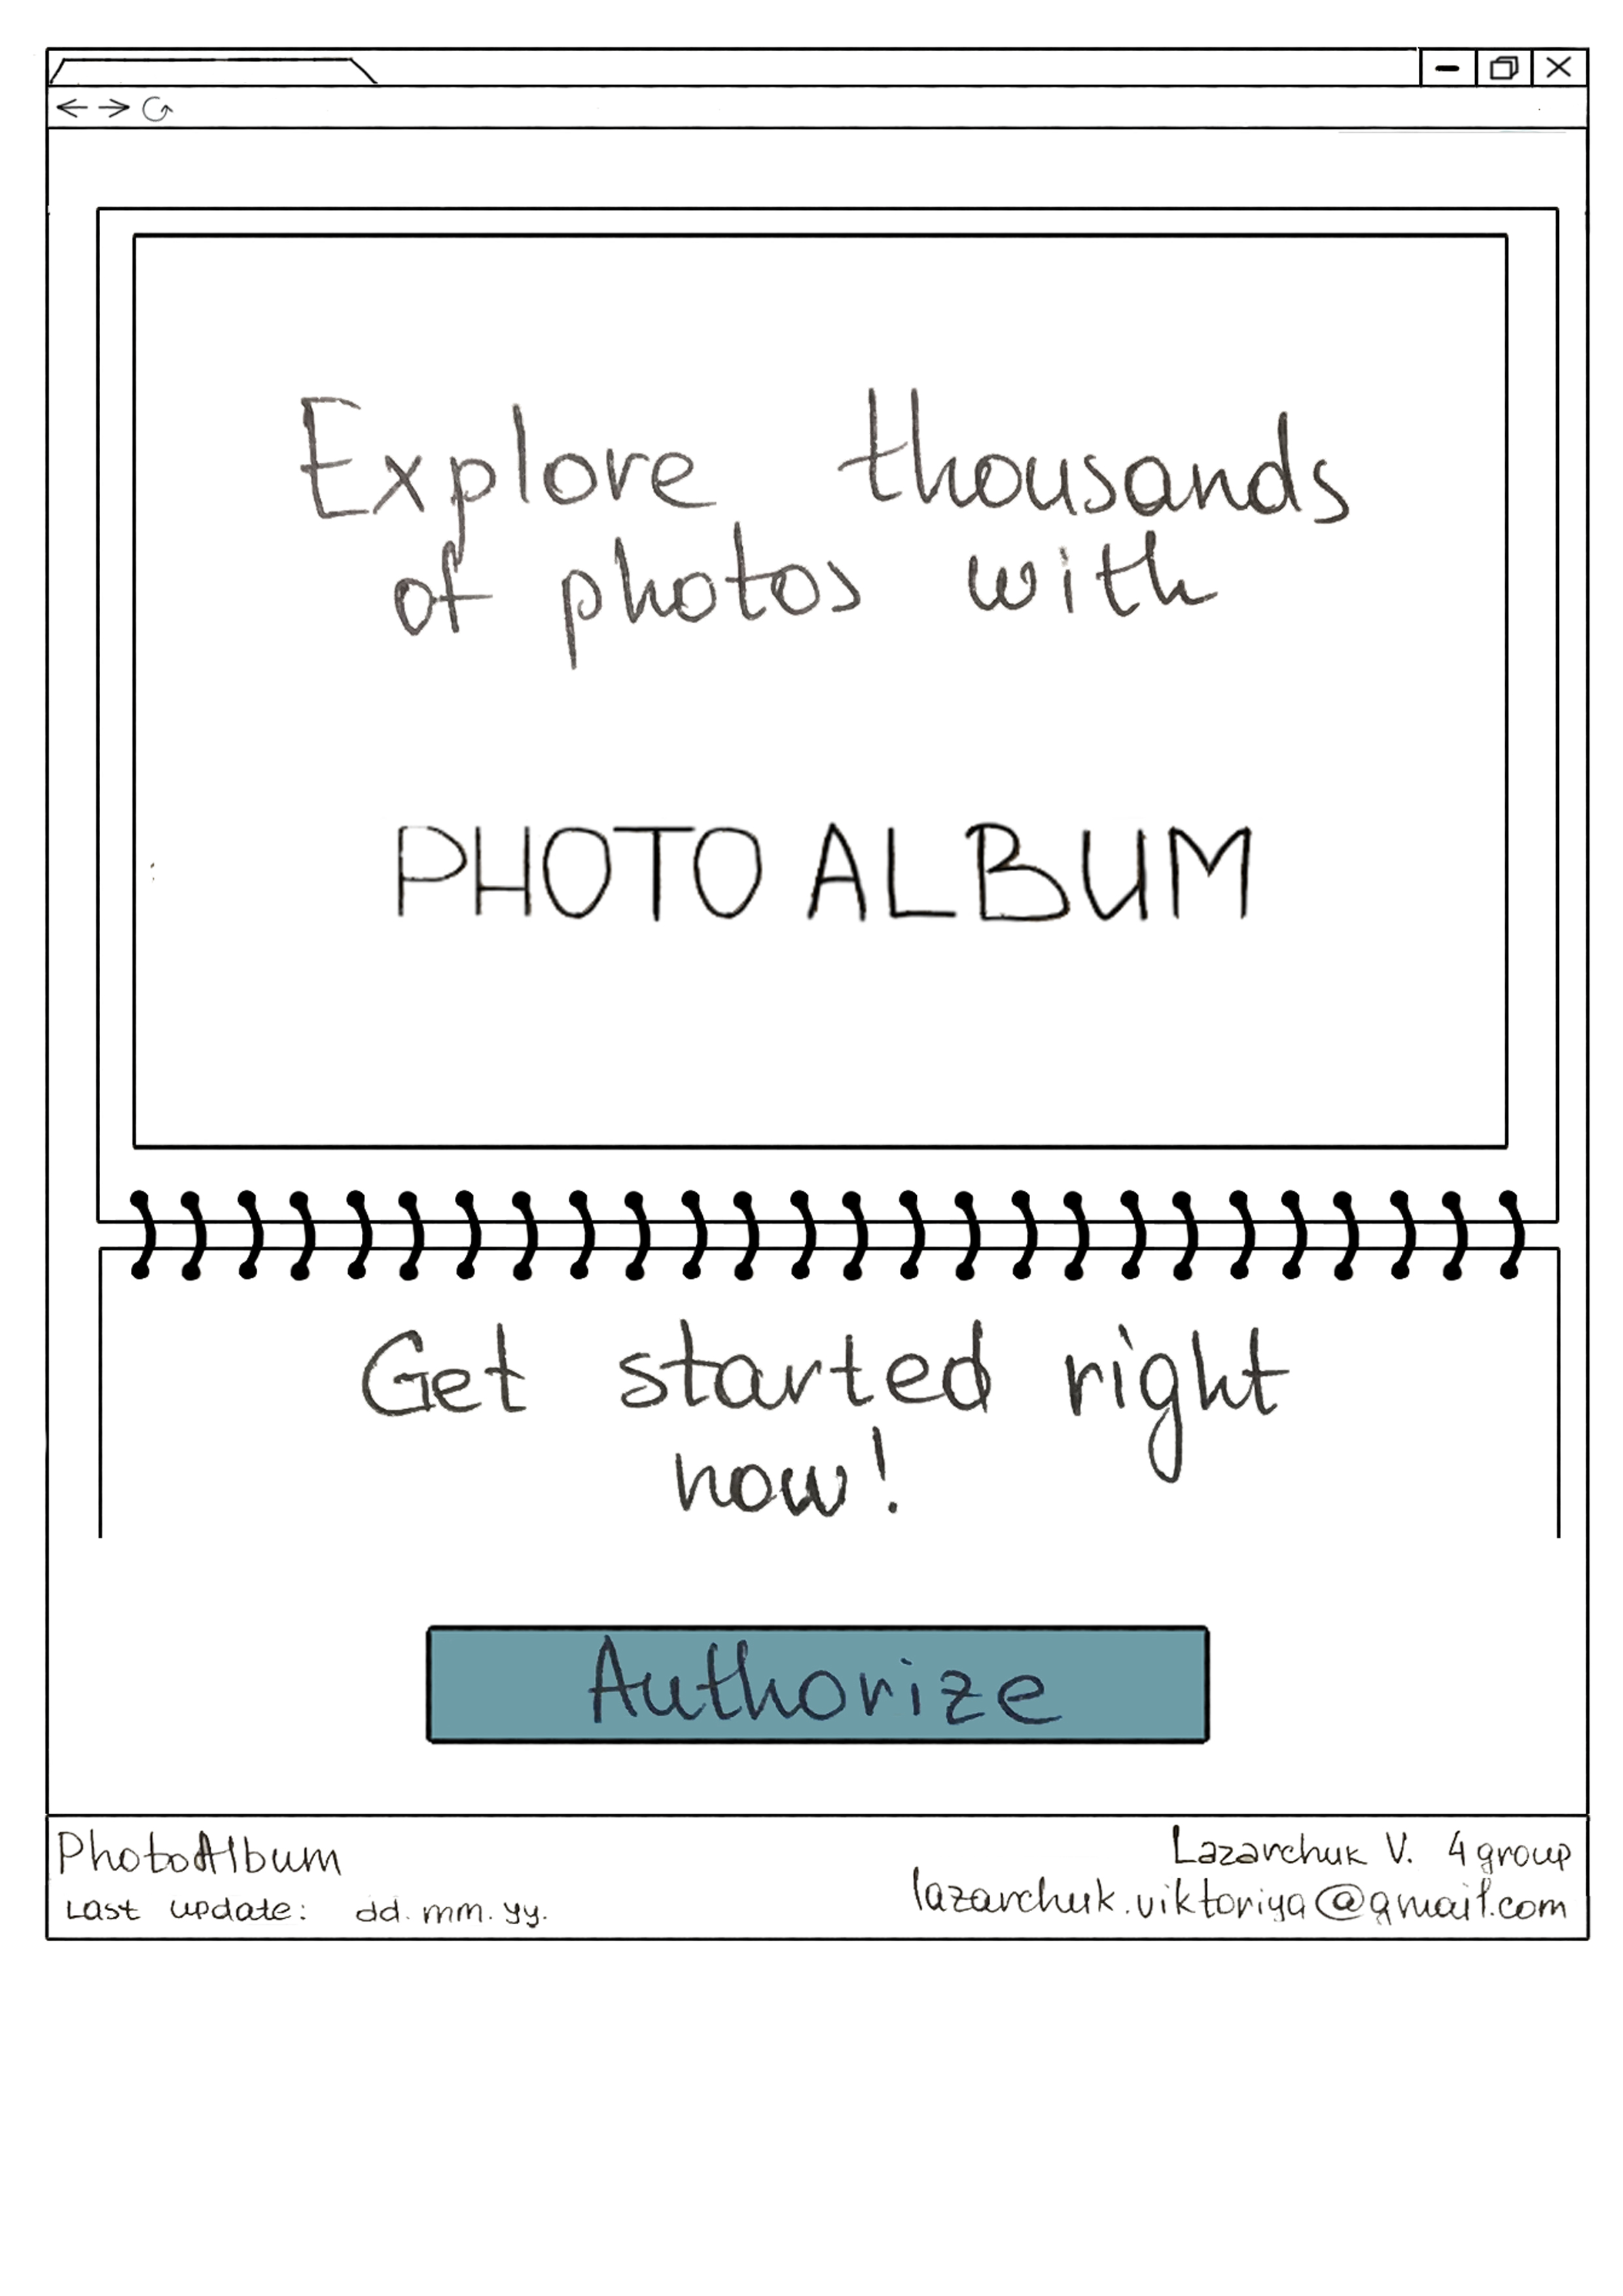 Explore thousands
of photos with
PHOTO ALBUM
Get started right
now!
Authorize
PhotoAlbum
Last update: dd.mm.yy.
Lazarchuk V. 4 group
lazarchuk.viktoriya@gmail.com